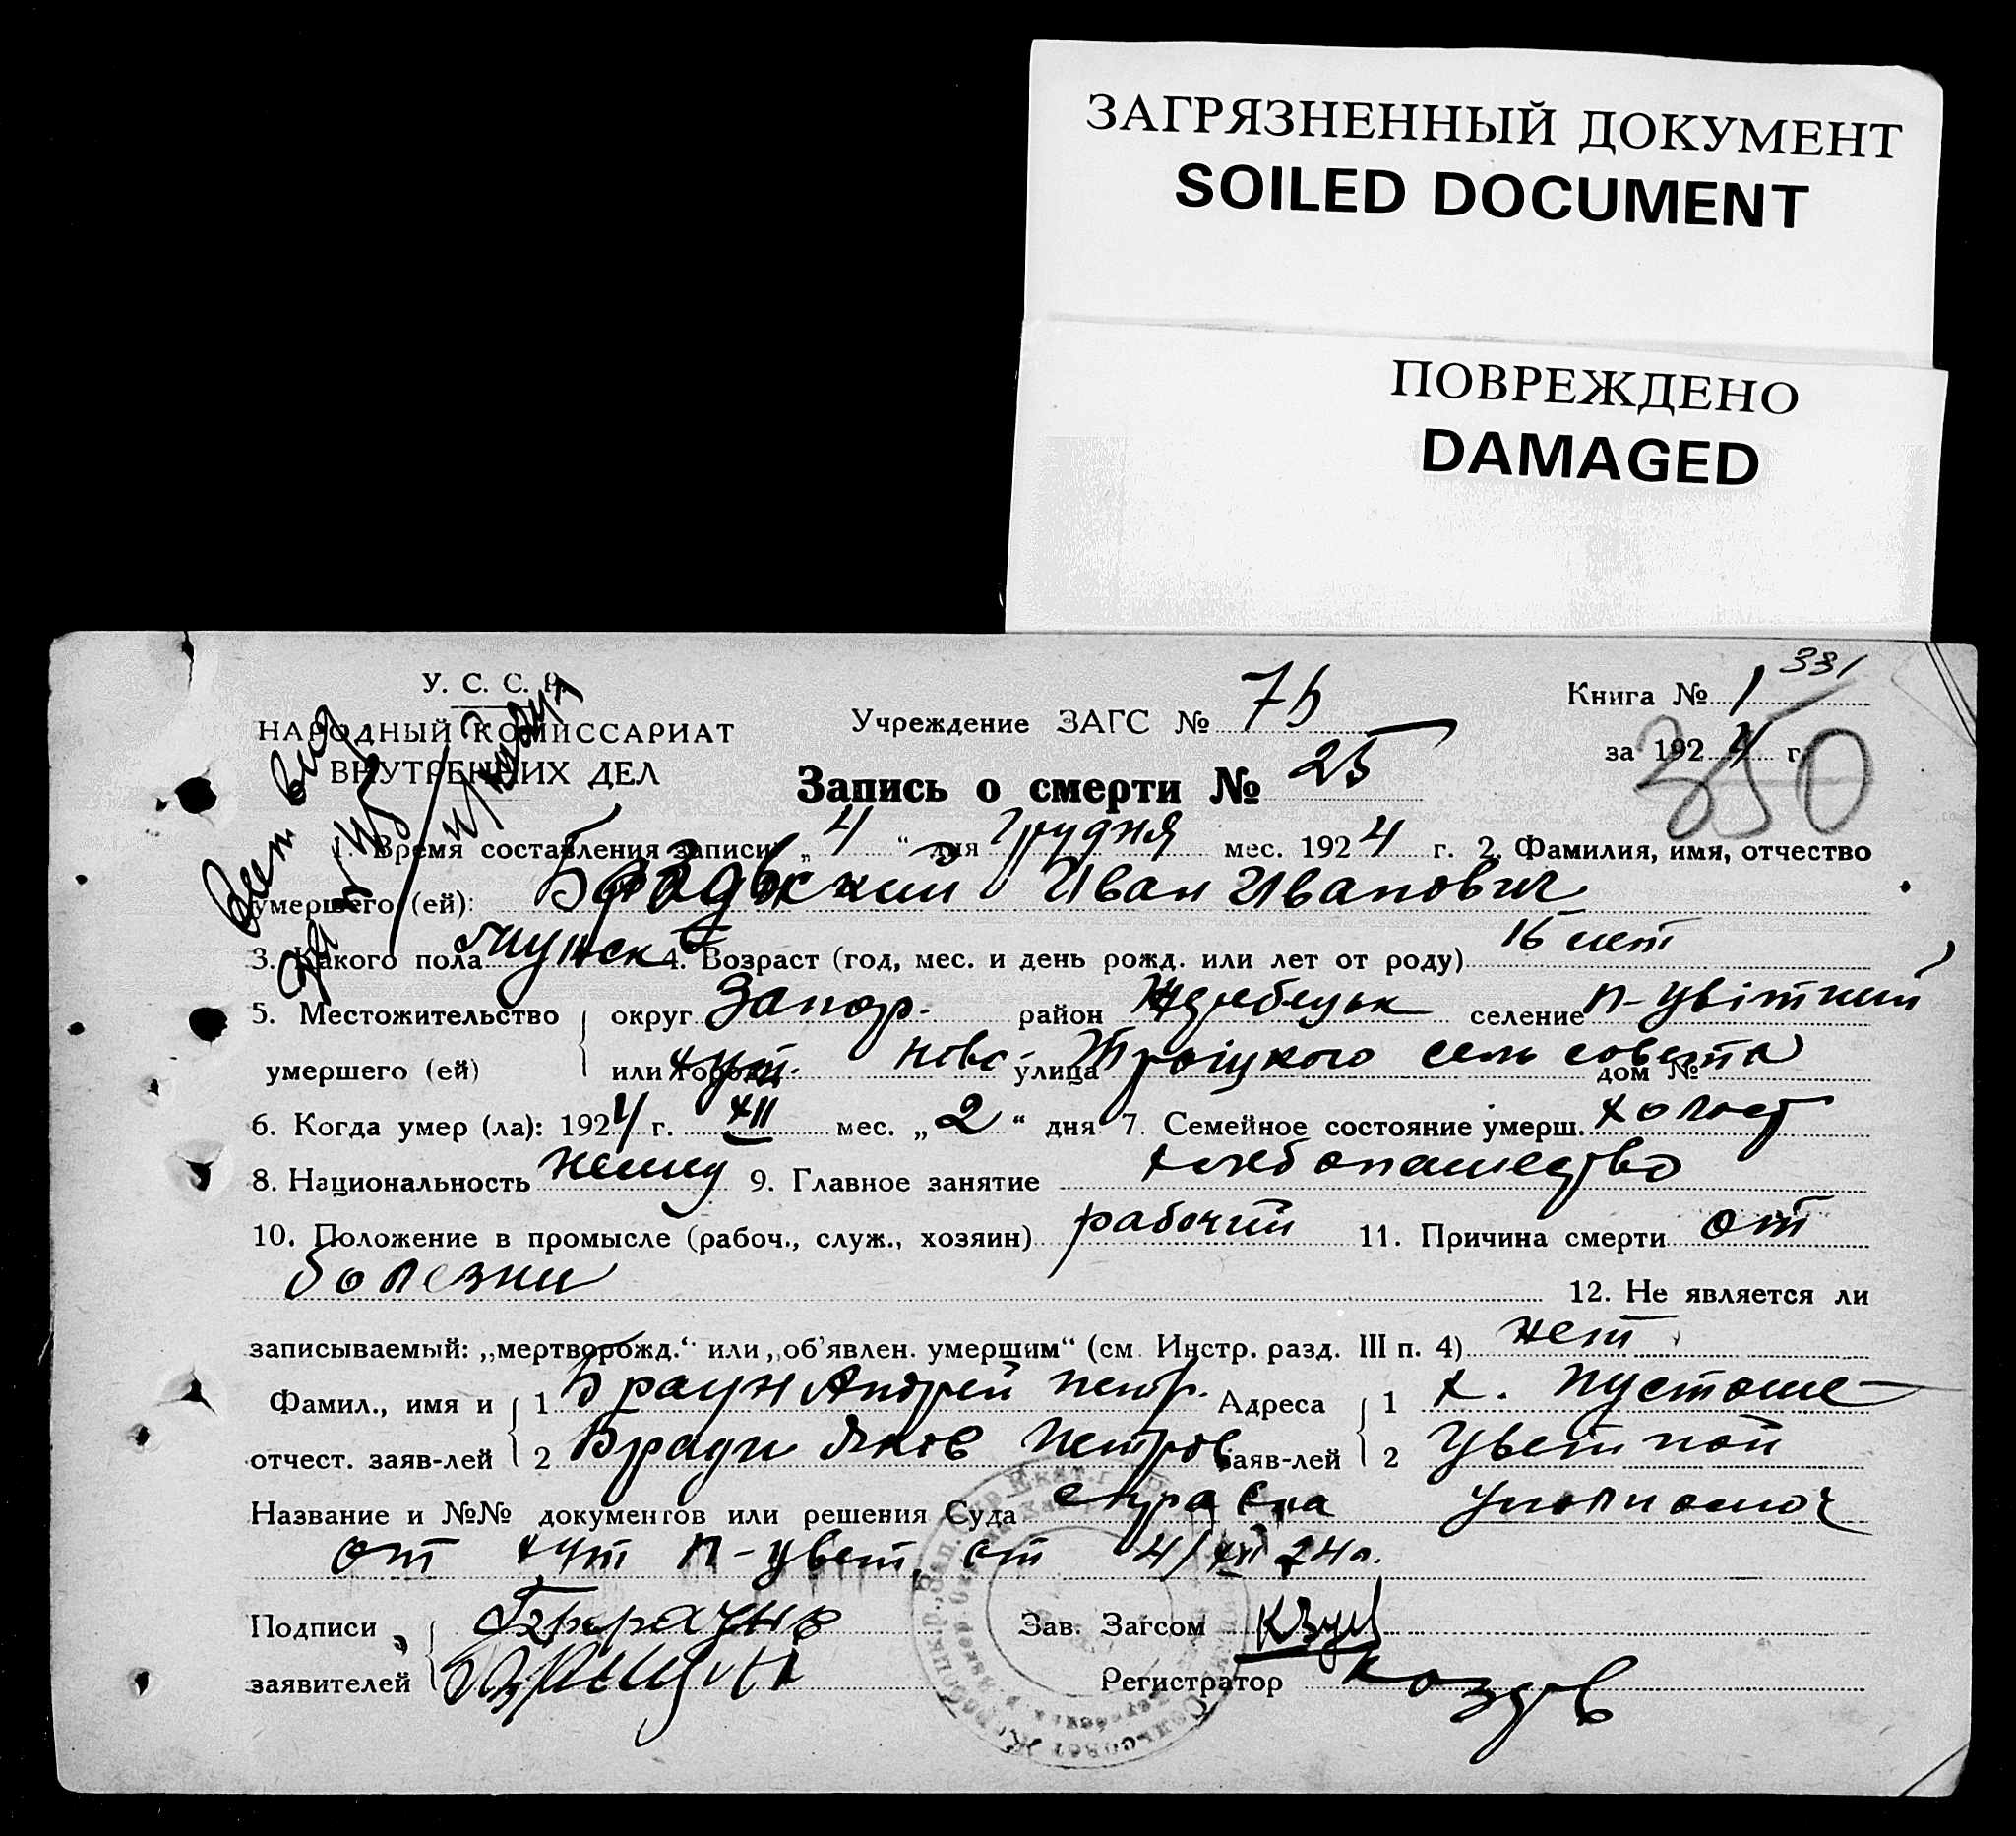 ЗАГРЯЗНЕННЫЙ ДОКУМЕНТ
SOILED DOCUMENT
ПОВРЕЖДЕНО
DAMAGED
331
У. С. С. Р.
НАРОДНЫЙ КОМИССАРИАТ
ВНУТРЕННИХ ДЕЛ
Учреждение ЗАГС № 75
Книга № 1
за 1924 г.
350
Запись о смерти № 25
1. Время составления записи: „4“ дня Грудня мес. 1924 г. 2. Фамилия, имя, отчество
умершего (ей): Иван Иванович
3. Какого пола мужск 4. Возраст (год, мес. и день рожд. или лет от роду) 16 лет
5. Местожительство округ Запор. район селение п-цвіткий
умершего (ей) или город хут. ново-улица Троіцкого сель совета дом №
6. Когда умер (ла): 1924 г. XII мес. „2“ дня 7. Семейное состояние умерш. холост
8. Национальность немец 9. Главное занятие хлебопашество
10. Положение в промысле (рабоч., служ., хозяин) рабочий 11. Причина смерти от
болезни 12. Не является ли
записываемый: „мертворожд.“ или „об'явлен. умершим“ (см. Инстр. разд. III п. 4) нет
Фамил., имя и 1 Браун Андрей Петр. Адреса 1 х. Пустоше-
отчест. заяв-лей 2 Яков Петров заяв-лей 2 Цветной
Название и №№ документов или решения Суда справка уполномоч
от хут п-цвет. от 4/XII 24 г.
Подписи Зав. Загсом
заявителей Регистратор